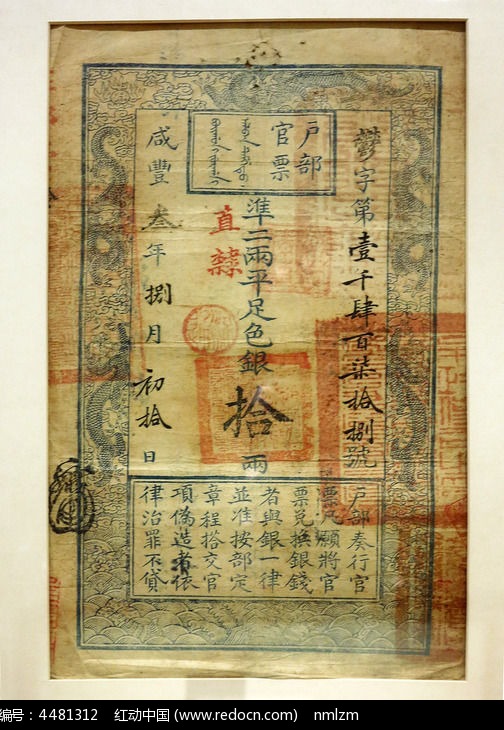 戶部
官票
字第壹千肆百柒拾捌號
準二兩平足色銀拾兩
直隸
咸豐叁年捌月初拾日
戶部奏行官
票凡願將官
票兌換銀錢
者與銀一律
並准按部定
章程搭交官
項偽造者依
律治罪不貸
编号：4481312 红动中国 (www.redocn.com) nmlzm